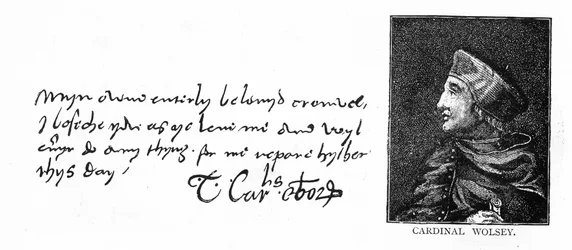 Myn owne enterly belovyd cromwel,
I beseche you as ye love me and wyl
evyr do any thyng for me repare hyther
thys day /
T. Car^lis ebor
CARDINAL WOLSEY.